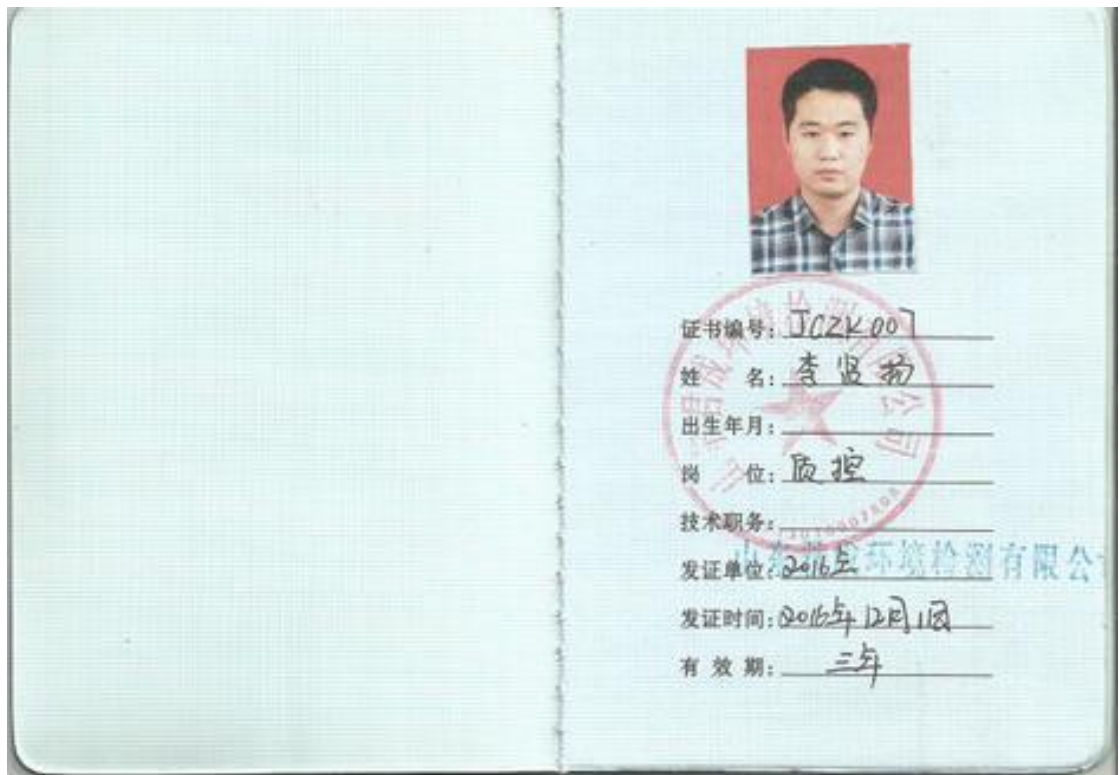 证书编号: JCZK007
姓 名: 李贤扬
出生年月:
岗 位: 质控
技术职务:
发证单位: 2016年
山东 环境检测有限公
发证时间: 2016年12月1日
有 效 期: 三年